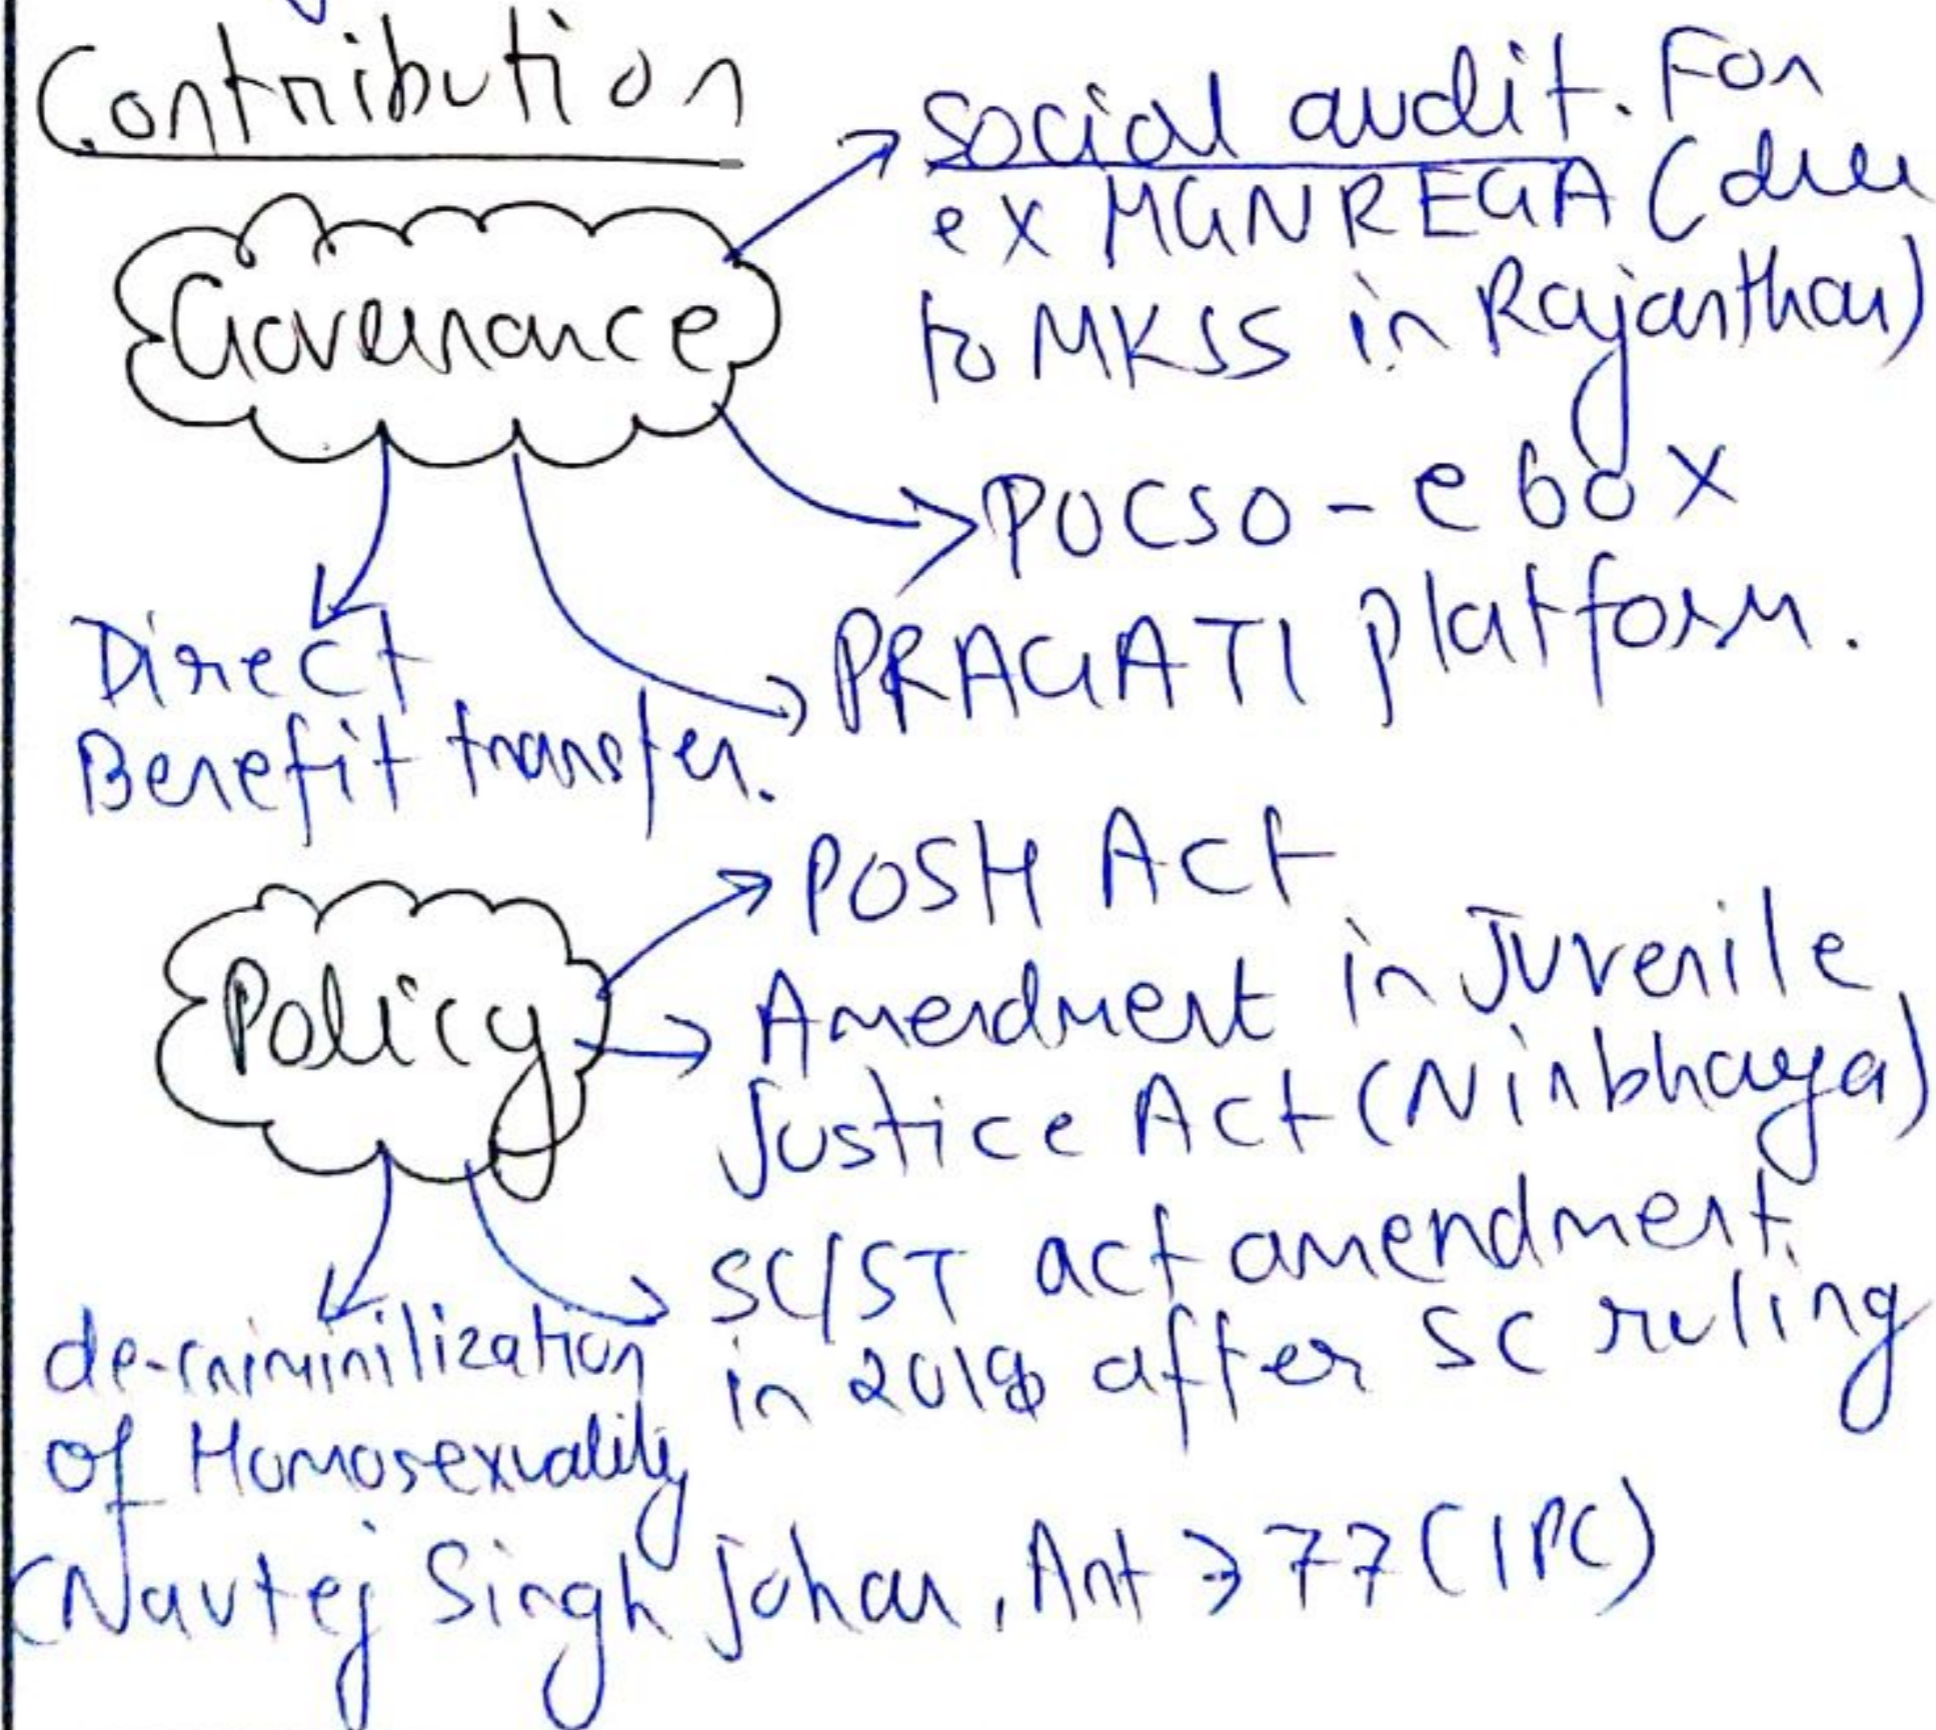 Contribution
Governance
social audit. For
ex MGNREGA (due
to MKSS in Rajasthan)
POCSO - e box
PRAGATI platform.
Direct
Benefit transfer.
Policy
POSH Act
Amendment in Juvenile
Justice Act (Nirbhaya)
SC/ST act amendment
in 2018 after SC ruling
de-criminilization
of Homosexuality
(Navtej Singh Johar, Art 377 (IPC)